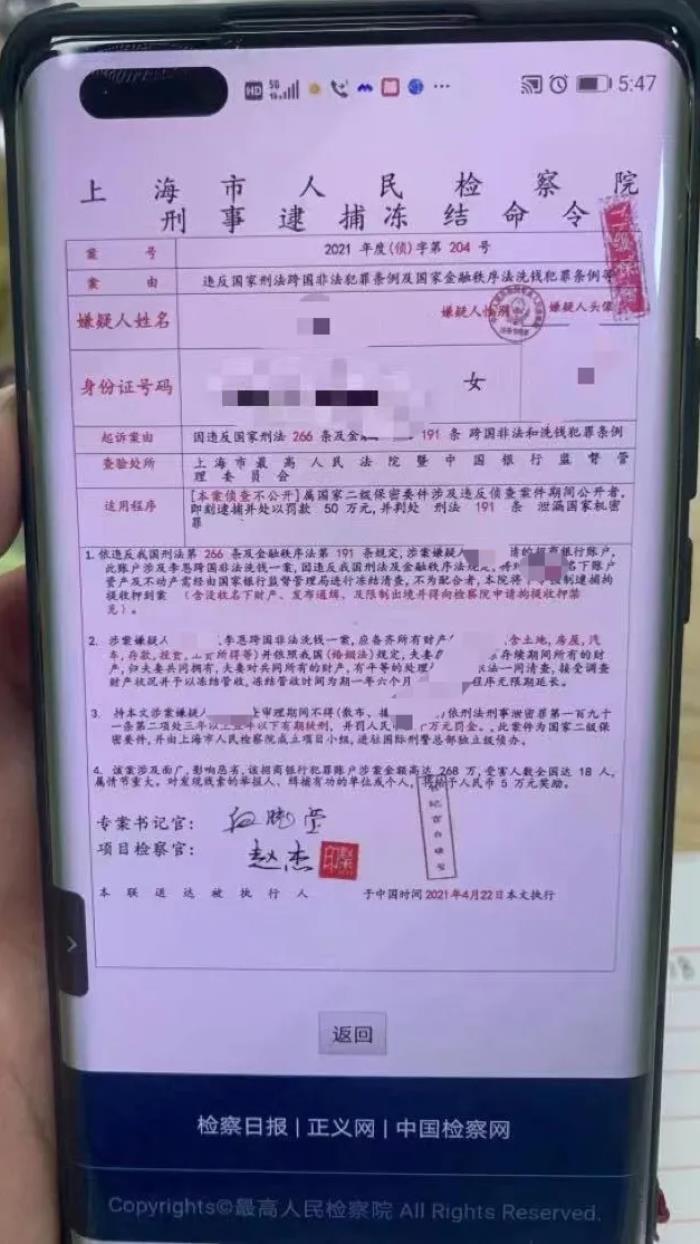 HD 5G 5:47
上海市人民检察院
刑事逮捕冻结命令
案号 2021 年度(侦)字第 204 号
案由 违反国家刑法跨国非法犯罪条例及国家金融秩序法洗钱犯罪条例等
嫌疑人姓名 嫌疑人性别 嫌疑人头像
身份证号码 女
起诉案由 因违反国家刑法 266 条及金 191 条 跨国非法和洗钱犯罪条例
查验处所 上海市最高人民法院暨中国银行监督管
理委员会
适用程序 [本案侦查不公开]属国家二级保密要件涉及违反侦查案件期间公开者,
即刻逮捕并处以罚款 50 万元,并判处 刑法 191 条 泄漏国家机密
罪
1. 依违反我国刑法第 266 条及金融秩序法第 191 条规定,涉案嫌疑人 招商银行账户,
此账户涉及李恩跨国非法洗钱一案,因违反我国刑法及金融秩序法规定,将对 名下账户
资产及不动产需经由国家银行监督管理局进行冻结清查,不为配合者,本院将 强制逮捕拘
提收押到案 (含没收名下财产、发布通缉、及限制出境并得向检察院申请拘提收押禁
见)。
2. 涉案嫌疑人 ,李恩跨国非法洗钱一案,应备齐所有财产 含土地,房屋,汽
车,存款,投资, 所得等)并依照我国(婚姻法)规定,夫妻 存续期间所有的财
产,归夫妻共同拥有,夫妻对共同所有的财产,有平等的处理 法一同清查,接受调查
财产状况并予以冻结管收,冻结管收时间为期一年六个月 程序无限期延长。
3. 持本文涉案嫌疑人 上审理期间不得(散布、 )依刑法刑事泄密罪第一百九十
一条第二项处三年以上 年以下有期徒刑,并罚人民 万元罚金。,此案件为国家二级保
密要件,并由上海市人民检察院成立项目小组,进驻国际刑警总部独立级侦办。
4. 该案涉及面广,影响恶劣,该招商银行犯罪账户涉案金额高达 268 万,受害人数全国达 18 人,
属情节重大。对发现线索的举报人、缉捕有功的单位及个人, 予人民币 5 万元奖励。
专案书记官:
项目检察官: 赵杰
本联送达被执行人 于中国时间 2021年4月22日本文执行
返回
检察日报 | 正义网 | 中国检察网
Copyrights©最高人民检察院 All Rights Reserved.